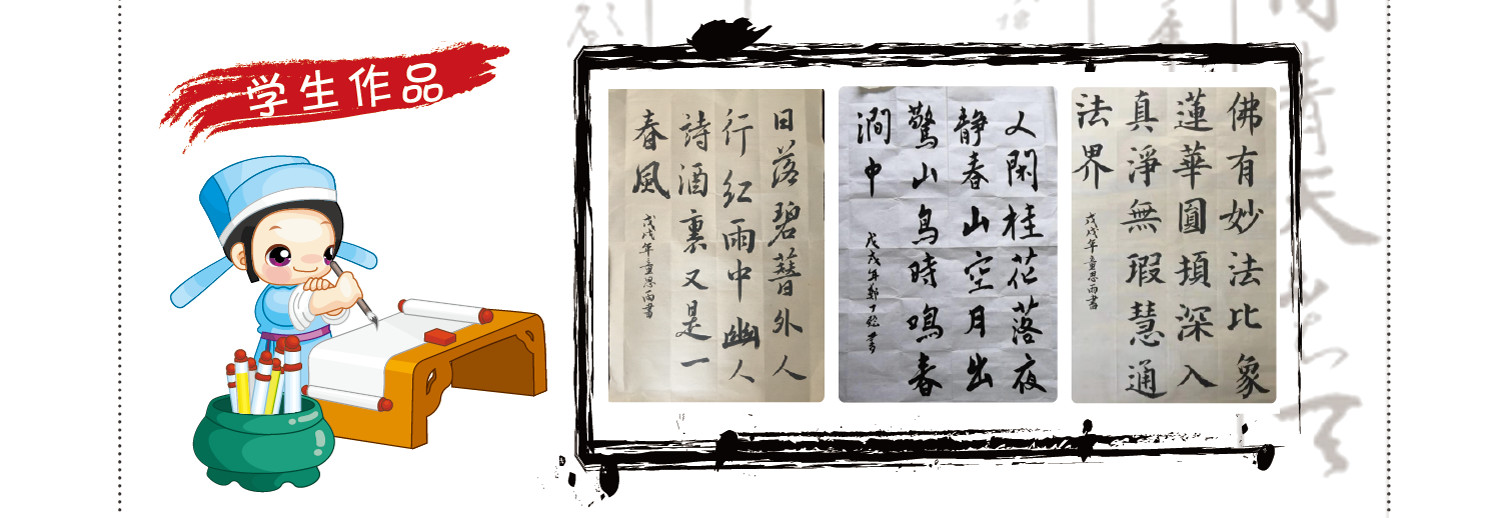 学生作品
日落碧簪外人
行红雨中幽人
詩酒裏又是一
春風
戊戌年童思雨書
人閑桂花落夜
静春山空月出
驚山鳥時鳴春
澗中
戊戌年
佛有妙法比象
蓮華圓頂深入
真淨無瑕慧通
法界
戊戌年童思雨書